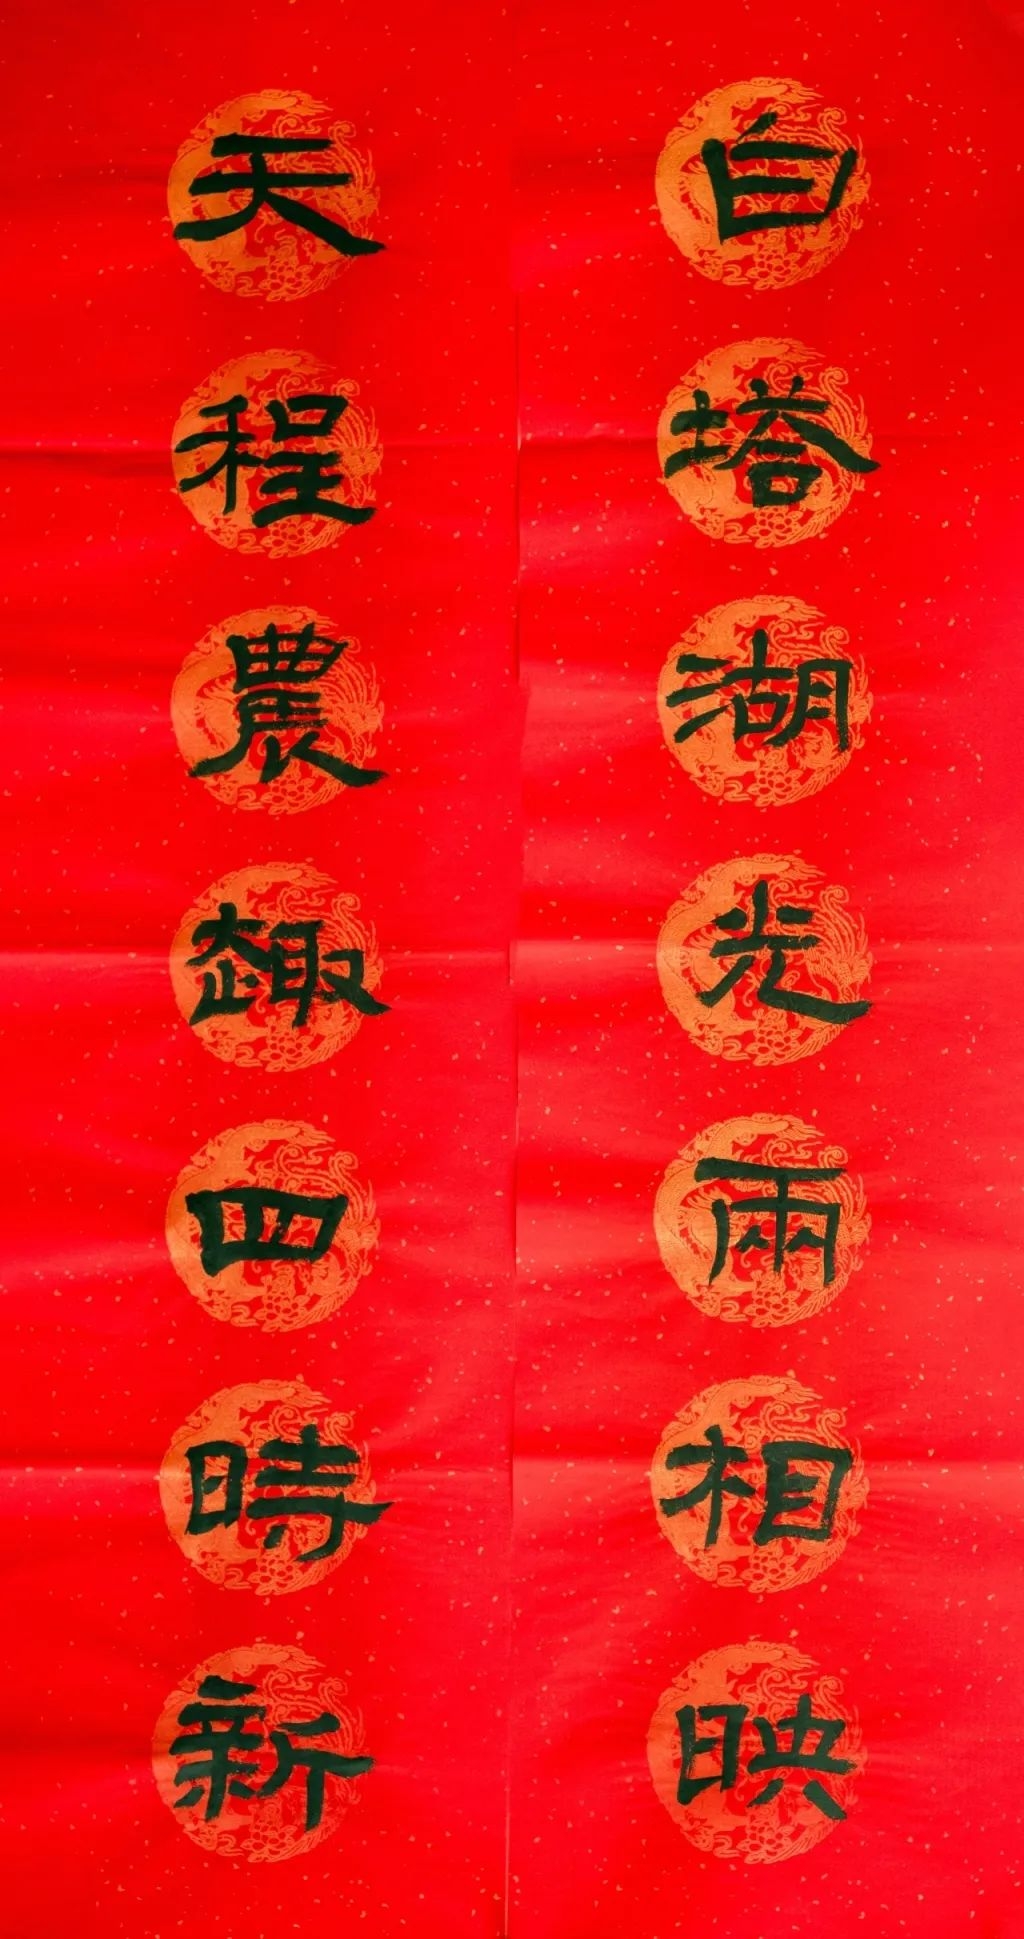 白塔湖光兩相映
天程農趣四時新